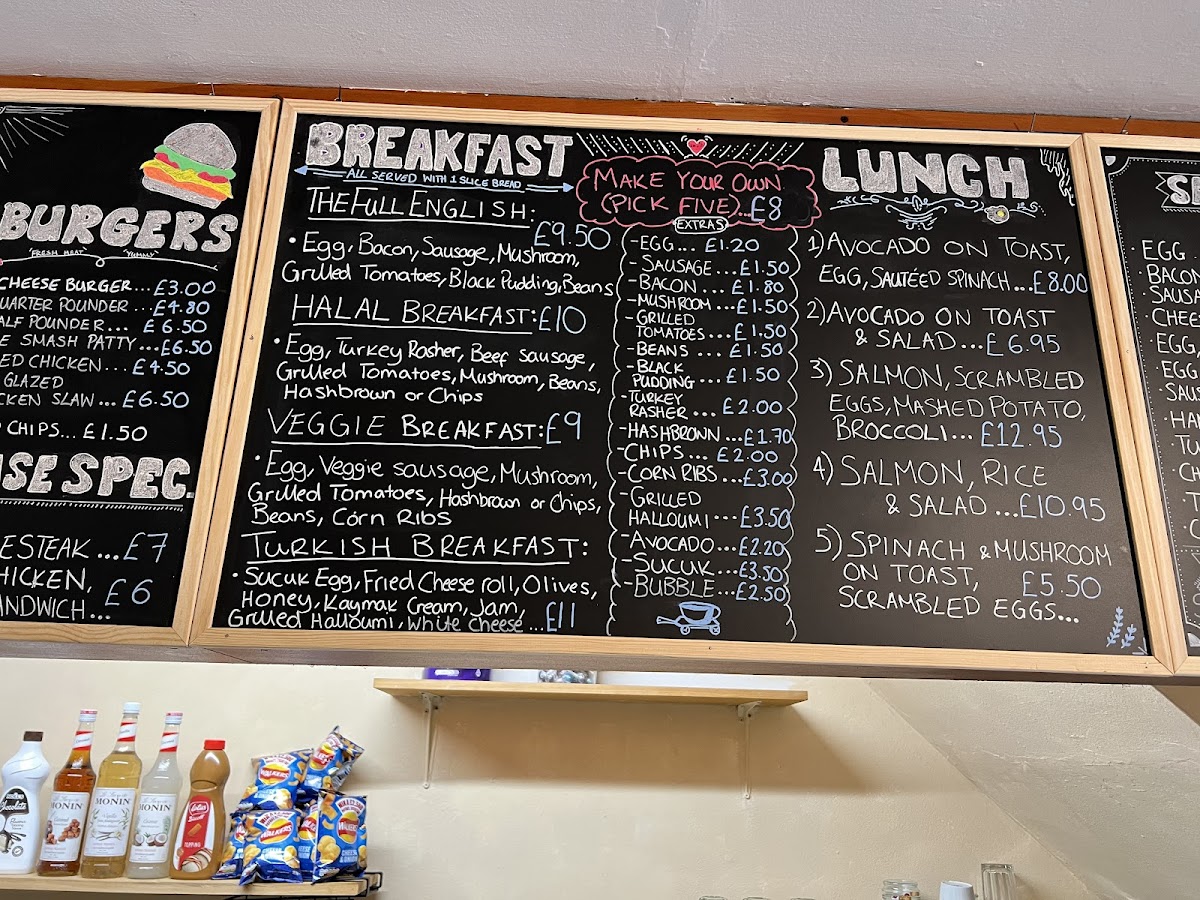 BURGERS
FRESH MEAT YUMMY
CHEESE BURGER...£3.00
QUARTER POUNDER ...£4.80
HALF POUNDER... £6.50
SMASH PATTY...£6.50
CHICKEN... £4.50
GLAZED
SLAW... £6.50
CHIPS... £1.50
SPEC.
...£7
£6
...
BREAKFAST
ALL SERVED WITH 1 SLICE BREAD
THE FULL ENGLISH:
£9.50
• Egg, Bacon, Sausage, Mushroom,
Grilled Tomatoes, Black Pudding, Beans
HALAL BREAKFAST: £10
• Egg, Turkey Rasher, Beef sausage,
Grilled Tomatoes, Mushroom, Beans,
Hashbrown or Chips
VEGGIE BREAKFAST: £9
• Egg, Veggie sausage, Mushroom,
Grilled Tomatoes, Hashbrown or Chips,
Beans, Corn Ribs
TURKISH BREAKFAST:
• Sucuk Egg, Fried Cheese roll, Olives,
Honey, Kaymak Cream, Jam,
Grilled Halloumi, White Cheese ...£11
MAKE YOUR OWN
(PICK FIVE)...£8
EXTRAS
-EGG... £1.20
-SAUSAGE...£1.50
-BACON... £1.80
-MUSHROOM...£1.50
-GRILLED
TOMATOES...£1.50
-BEANS... £1.50
-BLACK
PUDDING... £1.50
-TURKEY
RASHER... £2.00
-HASHBROWN...£1.70
-CHIPS... £2.00
-CORN RIBS...£3.00
-GRILLED
HALLOUMI...£3.50
-AVOCADO...£2.20
-SUCUK...£3.50
-BUBBLE...£2.50
LUNCH
1) AVOCADO ON TOAST,
EGG, SAUTÉED SPINACH...£8.00
2) AVOCADO ON TOAST
& SALAD ...£6.95
3) SALMON, SCRAMBLED
EGGS, MASHED POTATO,
BROCCOLI... £12.95
4) SALMON, RICE
& SALAD ...£10.95
5) SPINACH & MUSHROOM
ON TOAST, £5.50
SCRAMBLED EGGS...
EGG
BACON
EGG,
EGG
MONIN
MONIN
MONIN
Lotus
WALKERS
WALKERS
WALKERS
CHEESE
& ONION